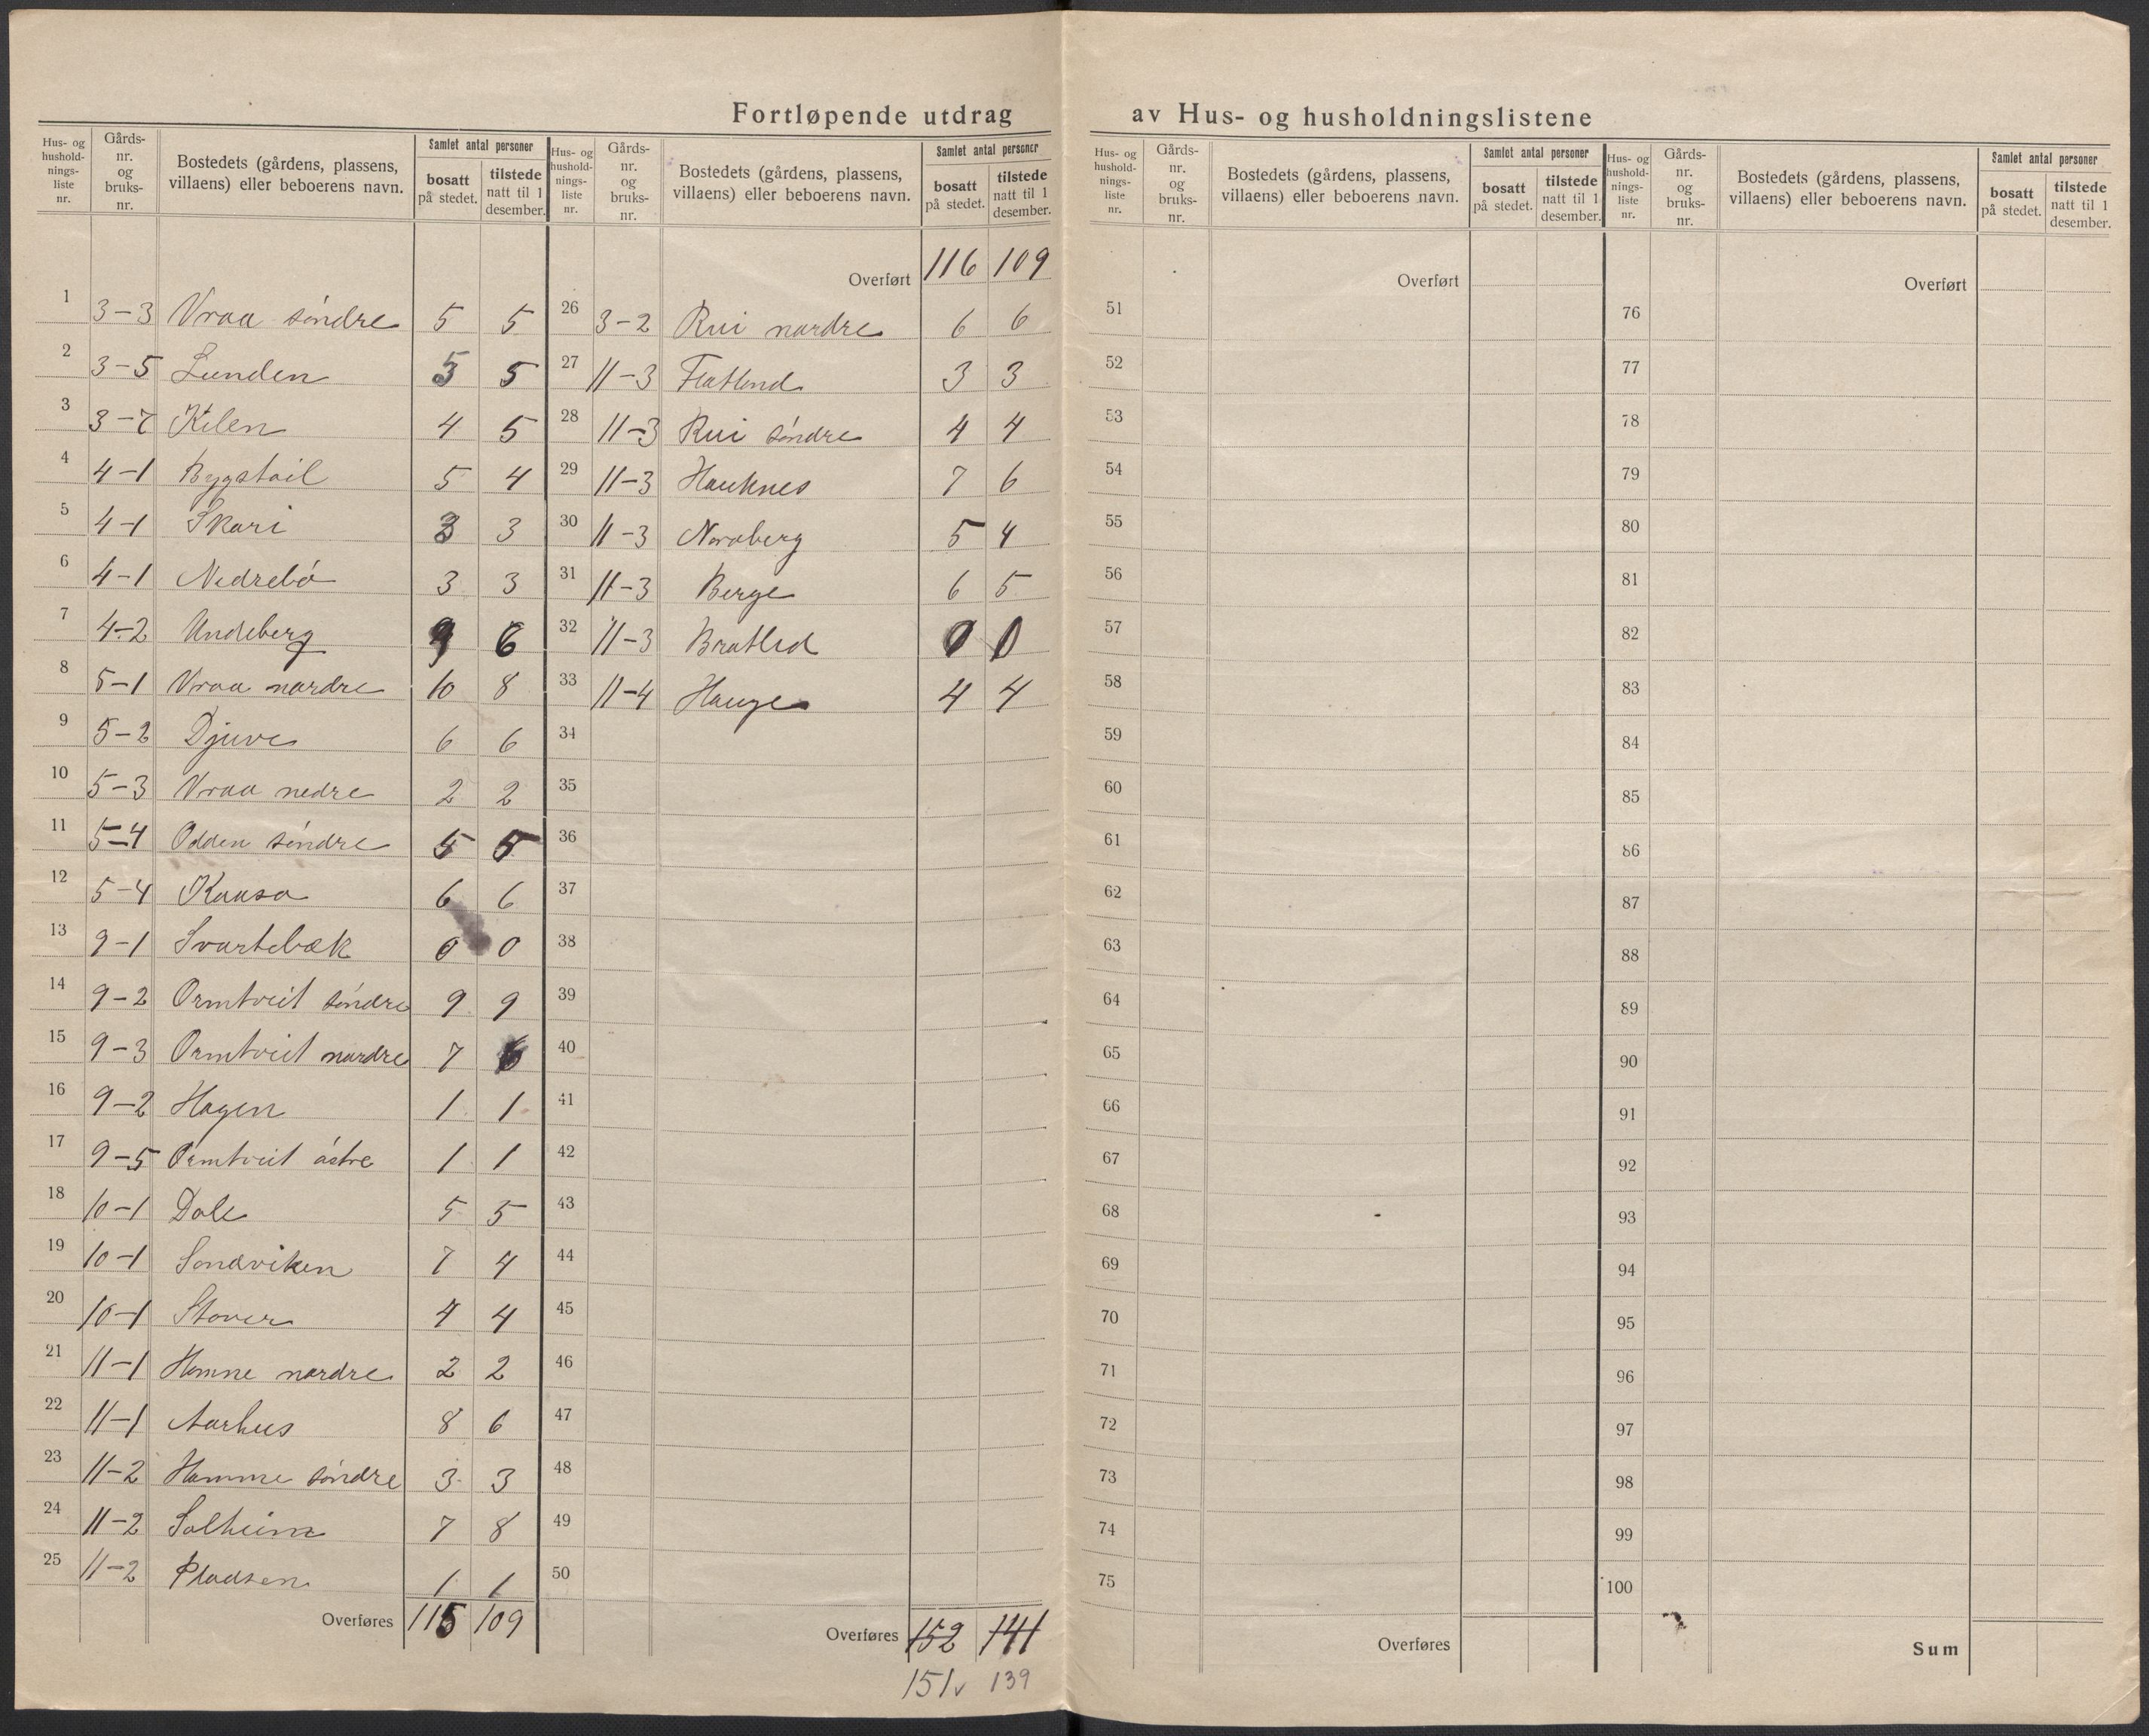 Fortløpende utdrag av Hus- og husholdningslistene
Hus- og hushold-nings-liste nr. Gårds-nr. og bruks-nr. Bostedets (gårdens, plassens, villaens) eller beboerens navn. Samlet antal personer bosatt på stedet. tilstede natt til 1 desember.
1 3-3 Vraa söndre 5 5
2 3-5 Lunden 5 5
3 3-7 Kilen 4 5
4 4-1 Bygstöil 5 4
5 4-1 Skori 3 3
6 4-1 Nedrebö 3 3
7 4-2 Undeberg 9 6
8 5-1 Vraa nordre 10 8
9 5-2 Djuve 6 6
10 5-3 Vraa nedre 2 2
11 5-4 Odden söndre 5 5
12 5-4 Kaasa 6 6
13 9-1 Svartebæk 0 0
14 9-2 Ormtveit söndre 9 9
15 9-3 Ormtveit nordre 7 6
16 9-2 Hagen 1 1
17 9-5 Ormtveit östre 1 1
18 10-1 Dale 5 5
19 10-1 Sandviken 7 4
20 10-1 Stover 4 4
21 11-1 Homne nordre 2 2
22 11-1 Aarhus 8 6
23 11-2 Homme söndre 3 3
24 11-2 Solheim 7 8
25 11-2 Pladsen 1 1
Overføres 115 109
Hus- og hushold-nings-liste nr. Gårds-nr. og bruks-nr. Bostedets (gårdens, plassens, villaens) eller beboerens navn. Samlet antal personer bosatt på stedet. tilstede natt til 1 desember.
Overført 116 109
26 3-2 Rui nordre 6 6
27 11-3 Flatland 3 3
28 11-3 Rui söndre 4 4
29 11-3 Hauknes 7 6
30 11-3 Nordberg 5 4
31 11-3 Berge 6 5
32 11-3 Bratlid 0 0
33 11-4 Hauge 4 4
34
35
36
37
38
39
40
41
42
43
44
45
46
47
48
49
50
Overføres 152 141
151 v 139
Hus- og hushold-nings-liste nr. Gårds-nr. og bruks-nr. Bostedets (gårdens, plassens, villaens) eller beboerens navn. Samlet antal personer bosatt på stedet. tilstede natt til 1 desember.
Overført
51
52
53
54
55
56
57
58
59
60
61
62
63
64
65
66
67
68
69
70
71
72
73
74
75
Overføres
Hus- og hushold-nings-liste nr. Gårds-nr. og bruks-nr. Bostedets (gårdens, plassens, villaens) eller beboerens navn. Samlet antal personer bosatt på stedet. tilstede natt til 1 desember.
Overført
76
77
78
79
80
81
82
83
84
85
86
87
88
89
90
91
92
93
94
95
96
97
98
99
100
Sum